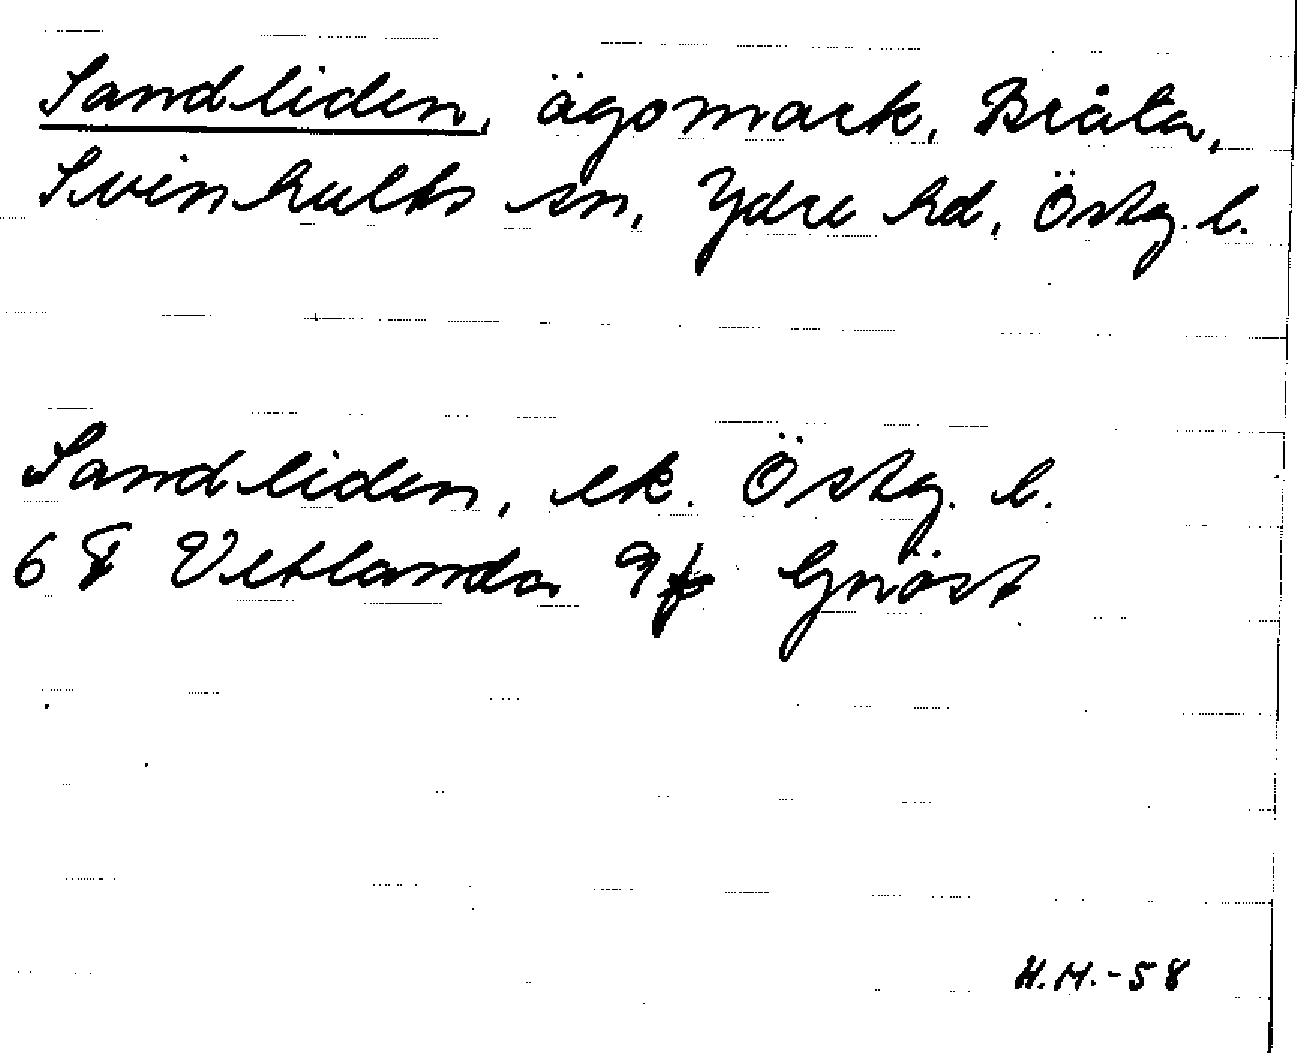 Sandliden, ägomark, Bråta,
Svinhults sn, Ydre hd, Östg. l.
Sandliden, ek. Östg. l.
6 F Vetlanda 9f Gnöst
H.M.-58